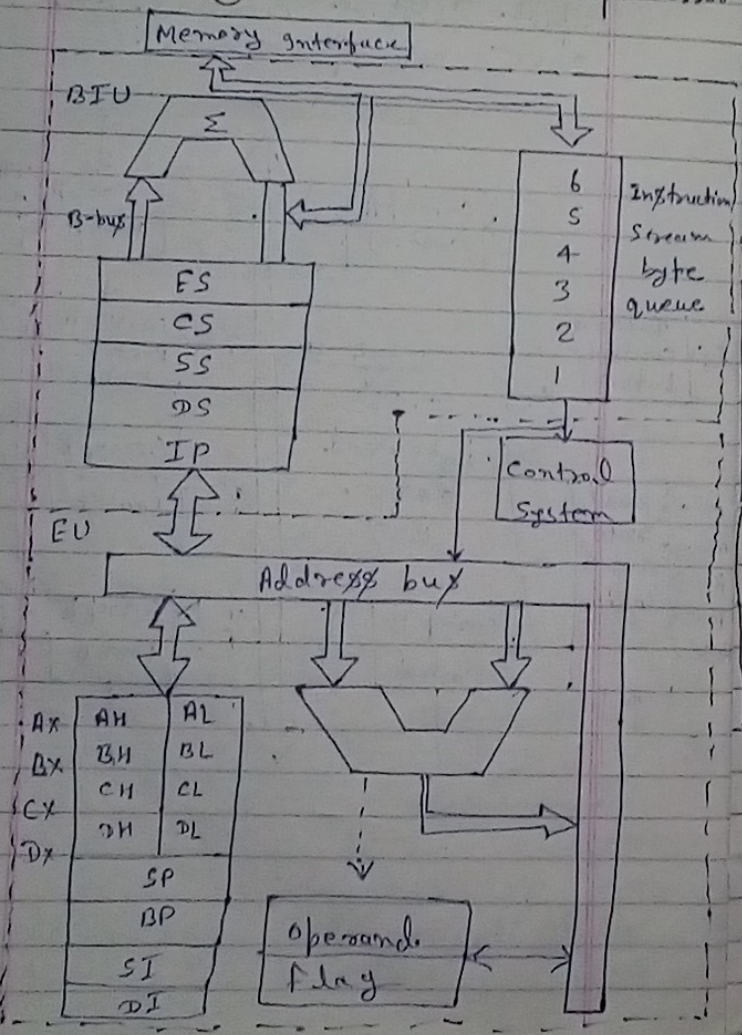 Memory Interface
BIU
Σ
B-bus
ES
CS
SS
DS
IP
6
5
4
3
2
1
Instruction
Stream
byte
queue
Control
System
EU
Address bus
AX AH AL
BX BH BL
CX CH CL
DX DH DL
SP
BP
SI
DI
Operand
flag